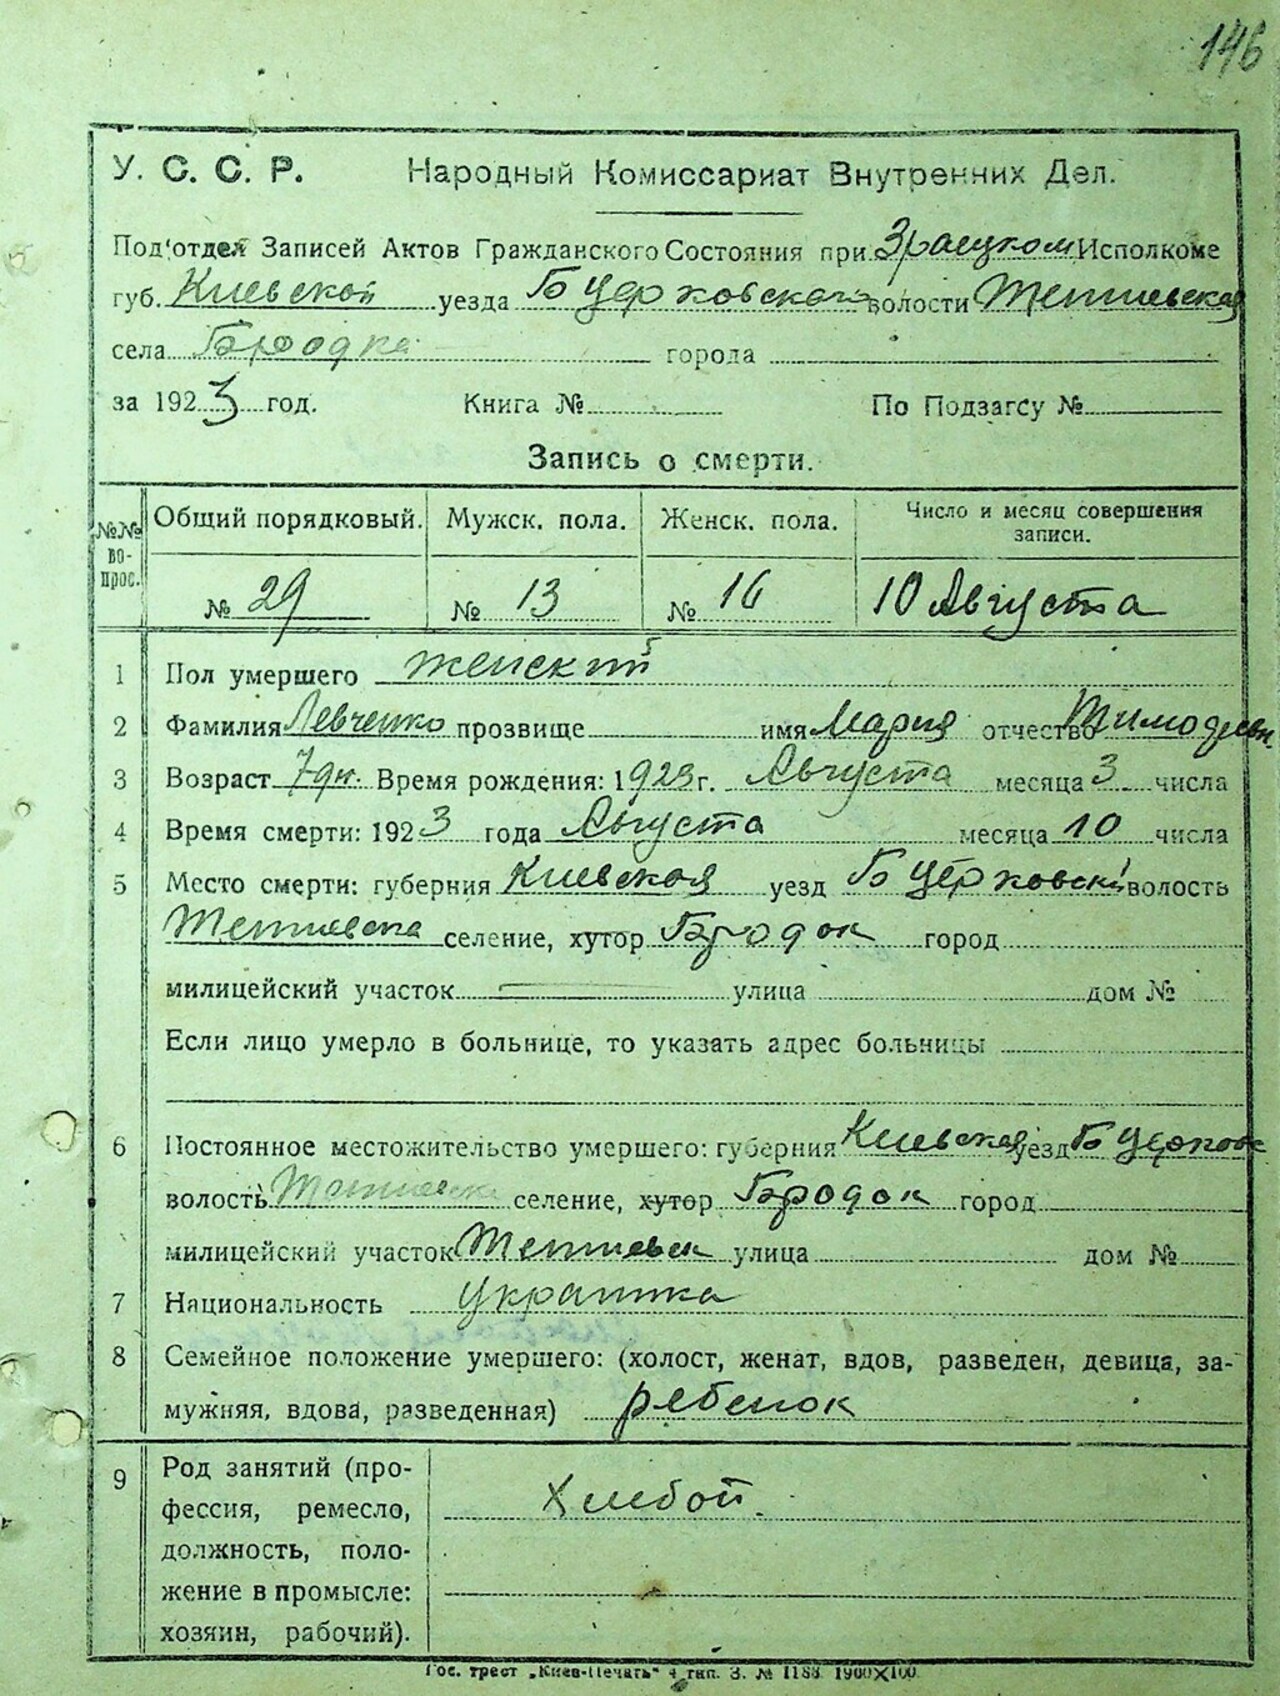 146
У. С. С. Р. Народный Комиссариат Внутренних Дел.
Под'отдел Записей Актов Гражданского Состояния при Исполкоме
губ. Киевской уезда Б Церковского волости Тетиевская
села Бродка города
за 1923 год. Книга № По Подзагсу №
Запись о смерти.
№№ во- прос. Общий порядковый. Мужск. пола. Женск. пола. Число и месяц совершения записи.
№ 29 № 13 № 16 10 Августа
1 Пол умершего женский
2 Фамилия Левченко прозвище имя Мария отчество Тимофеевн
3 Возраст 7 дн. Время рождения: 1923 г. Августа месяца 3 числа
4 Время смерти: 1923 года Августа месяца 10 числа
5 Место смерти: губерния Киевская уезд Б Церковск волость
Тетиевска селение, хутор Бродок город
милицейский участок улица дом №
Если лицо умерло в больнице, то указать адрес больницы
6 Постоянное местожительство умершего: губерния Киевская уезд Б Церковс
волость Тетиевск селение, хутор Бродок город
милицейский участок Тетиевск улица дом №
7 Национальность Украинка
8 Семейное положение умершего: (холост, женат, вдов, разведен, девица, за-
мужняя, вдова, разведенная) ребенок
9 Род занятий (про-
фессия, ремесло, Хлебоп.
должность, поло-
жение в промысле:
хозяин, рабочий).
Гос. трест „Киев-Печать" 4 тип. З. № 1188. 1900X100.